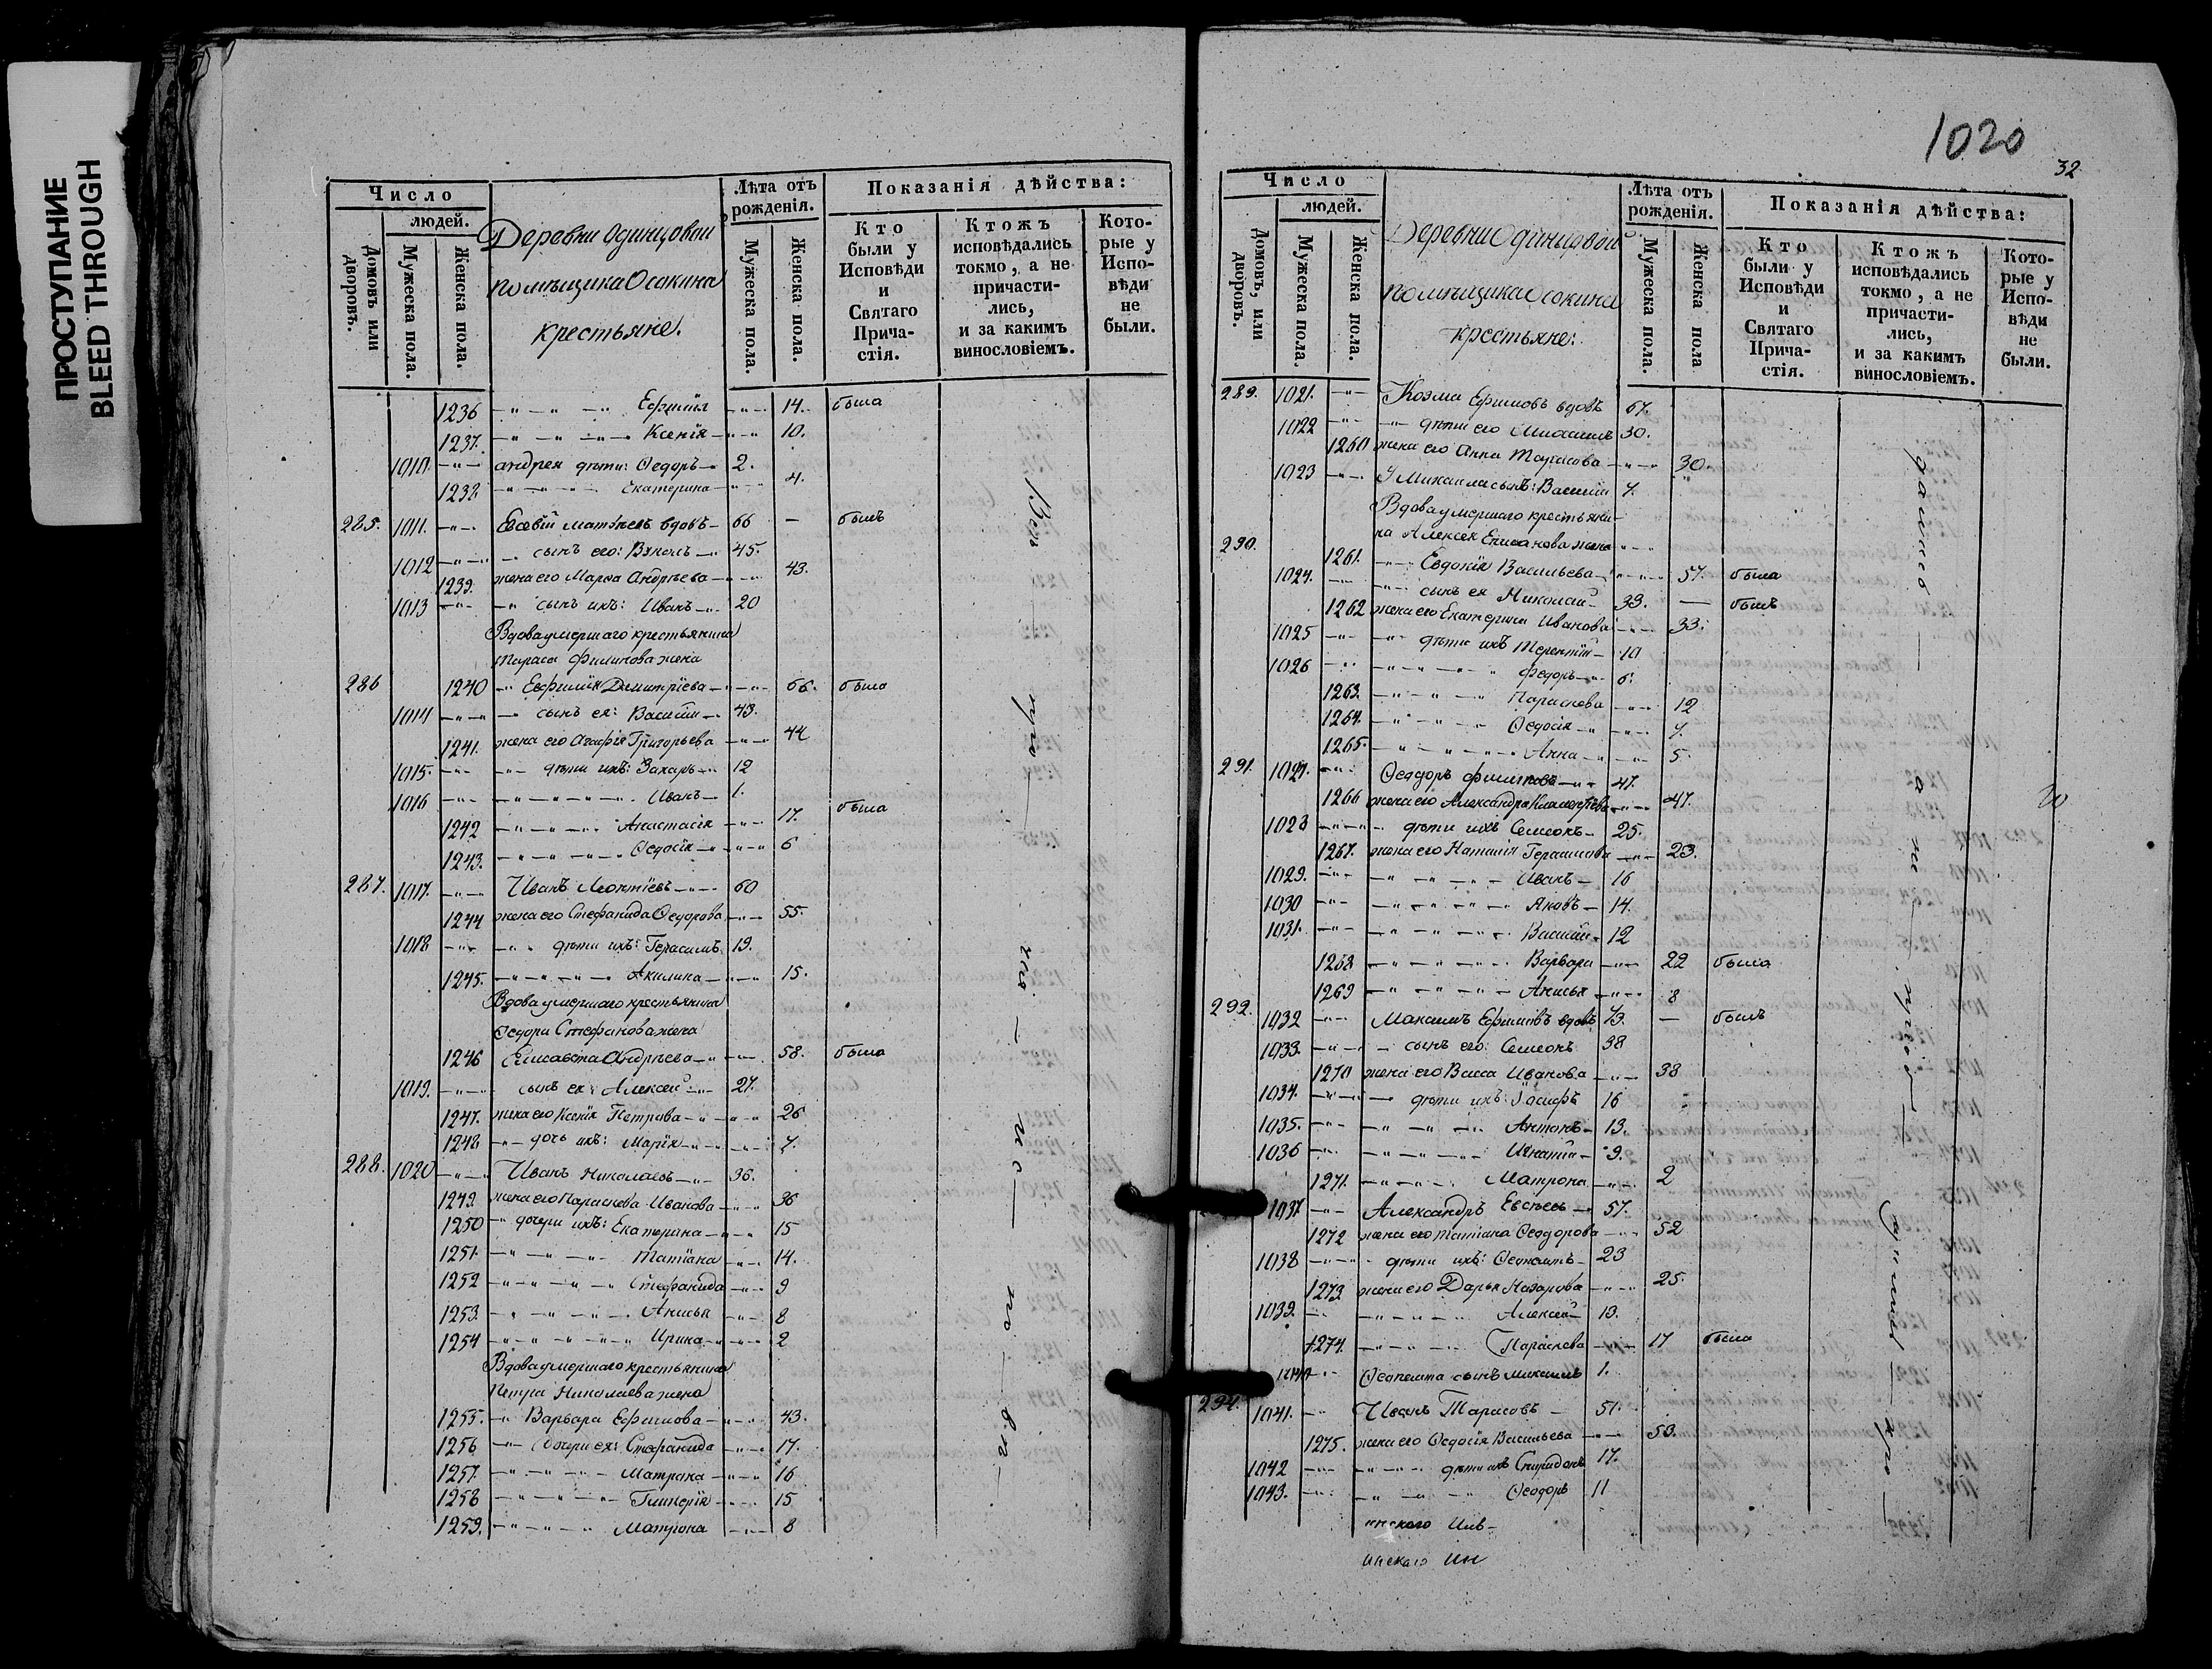 ПРОСТУПАНИЕ
BLEED THROUGH
Число
людей.
Домовъ или дворовъ.
Мужеска пола.
Женска пола.
Деревни Одинцовой
помѣщика Осокина
крестьяне.
Лѣта отъ рожденія.
Мужеска пола.
Женска пола.
Показанія дѣйства:
Кто были у Исповѣди и Святаго Прича-стія.
Ктожъ исповѣдались токмо, а не причасти-лись, и за какимъ винословіемъ.
Кото-рые у Испо-вѣди не были.
1236 Ефимія 14. была
1237. Ксенія 10.
1010. Андрея дѣти: Ѳедоръ 2.
1238. Екатерина 4.
285. 1011. Евсевій Матвѣевъ вдовъ 66 — былъ
1012 сынъ его: 45.
1239. жена его Марѳа Андрѣева 43.
1013 сынъ ихъ: Иванъ 20
Вдова умершаго крестьянина
Тараса Филипова жена
286 1240 Евфимія Димитріева 66. была
1014 сынъ ея: Василій 43.
1241. жена его Агафія Григорьева 44
1015. дѣти ихъ: Захаръ 12
1016 Иванъ 1.
1242 Анастасія 17. была
1243. Ѳедосія 6
287. 1017. Иванъ Леонтіевъ 60
1244 жена его Стефанида Ѳедорова 55.
1018 дѣти ихъ: Герасимъ 19.
1245. Акилина 15.
Вдова умершаго крестьянина
Ѳедора Стефанова жена
1246 Елисавета Андрѣева 58. была
1019. сынъ ея: Алексѣй 27.
1247. жена его Ксенія Петрова 26
1248 дочь ихъ: Марія 7.
288. 1020 Иванъ Николаевъ 36.
1249. жена его Параскева Иванова 36
1250 дочери ихъ: Екатерина 15
1251. Татіана 14.
1252 Стефанида 9
1253. Анисья 8
1254 Ирина 2
Вдова умершаго крестьянина
Петра Николаева жена
1255. Варвара Ефимова 43.
1256 дочери ея: Стефанида 17.
1257. Матрона 16
1258 Гликерія 15
1259. Матрона 8
1020
32
Число
людей.
Домовъ, или дворовъ.
Мужеска пола.
Женска пола.
Деревни Одинцовой
помѣщика Осокина
крестьяне:
Лѣта отъ рожденія.
Мужеска пола.
Женска пола
Показанія дѣйства:
Кто были у Исповѣди и Святаго Прича-стія.
Ктожъ исповѣдались токмо, а не причасти-лись, и за какимъ винословіемъ.
Кото-рые у Испо-вѣди не были.
289. 1021. Козма Ефимовъ вдовъ 67.
1022 дѣти его 30.
1260 жена его Анна Тарасова 30.
1023 сынъ: Василій 7.
Вдова умершаго крестьяни-
на Алексея жена
290. 1261. Евдокія Васильева 57. была
1024. сынъ ея Николай 33. — былъ
1262 жена его Екатерина Иванова 33.
1025 дѣти ихъ Терентій 10
1026 Федоръ 6.
1263. Параскева 12
1264. Ѳедосія 7.
1265. Анна 5.
291. 1027. Ѳеодоръ Филиповъ 47.
1266 жена его Александра 47.
1028 дѣти ихъ Симеонъ 25.
1267. жена его Наталія Герасимова 23.
1029. Иванъ 16
1030 Яковъ 14.
1031. Василій 12
1268 Варвара 22 была
1269 Анисья 8
292. 1032 Максимъ Ефимовъ вдовъ 73. — былъ
1033. сынъ его: Симеонъ 38
1270 жена его Васса Иванова 38
1034. дѣти ихъ: Іосифъ 16
1035. Антонъ 13.
1036 Игнатій 9.
1271. Матрона 2
1037 Александръ Евсѣевъ 57.
1272 жена его Татіана Ѳеодорова 52
1038 дѣти ихъ: Ѳеопемтъ 23
1273 жена его Дарья Назарова 25.
1039. Алексѣй 13.
1274. Параскева 17 была
1040 Ѳеопемта сынъ 1.
294. 1041. Иванъ Тарасовъ 51.
1275. жена его Ѳедосія Васильева 53.
1042 дѣти ихъ Спиридонъ 17.
1043. Ѳеодоръ 11